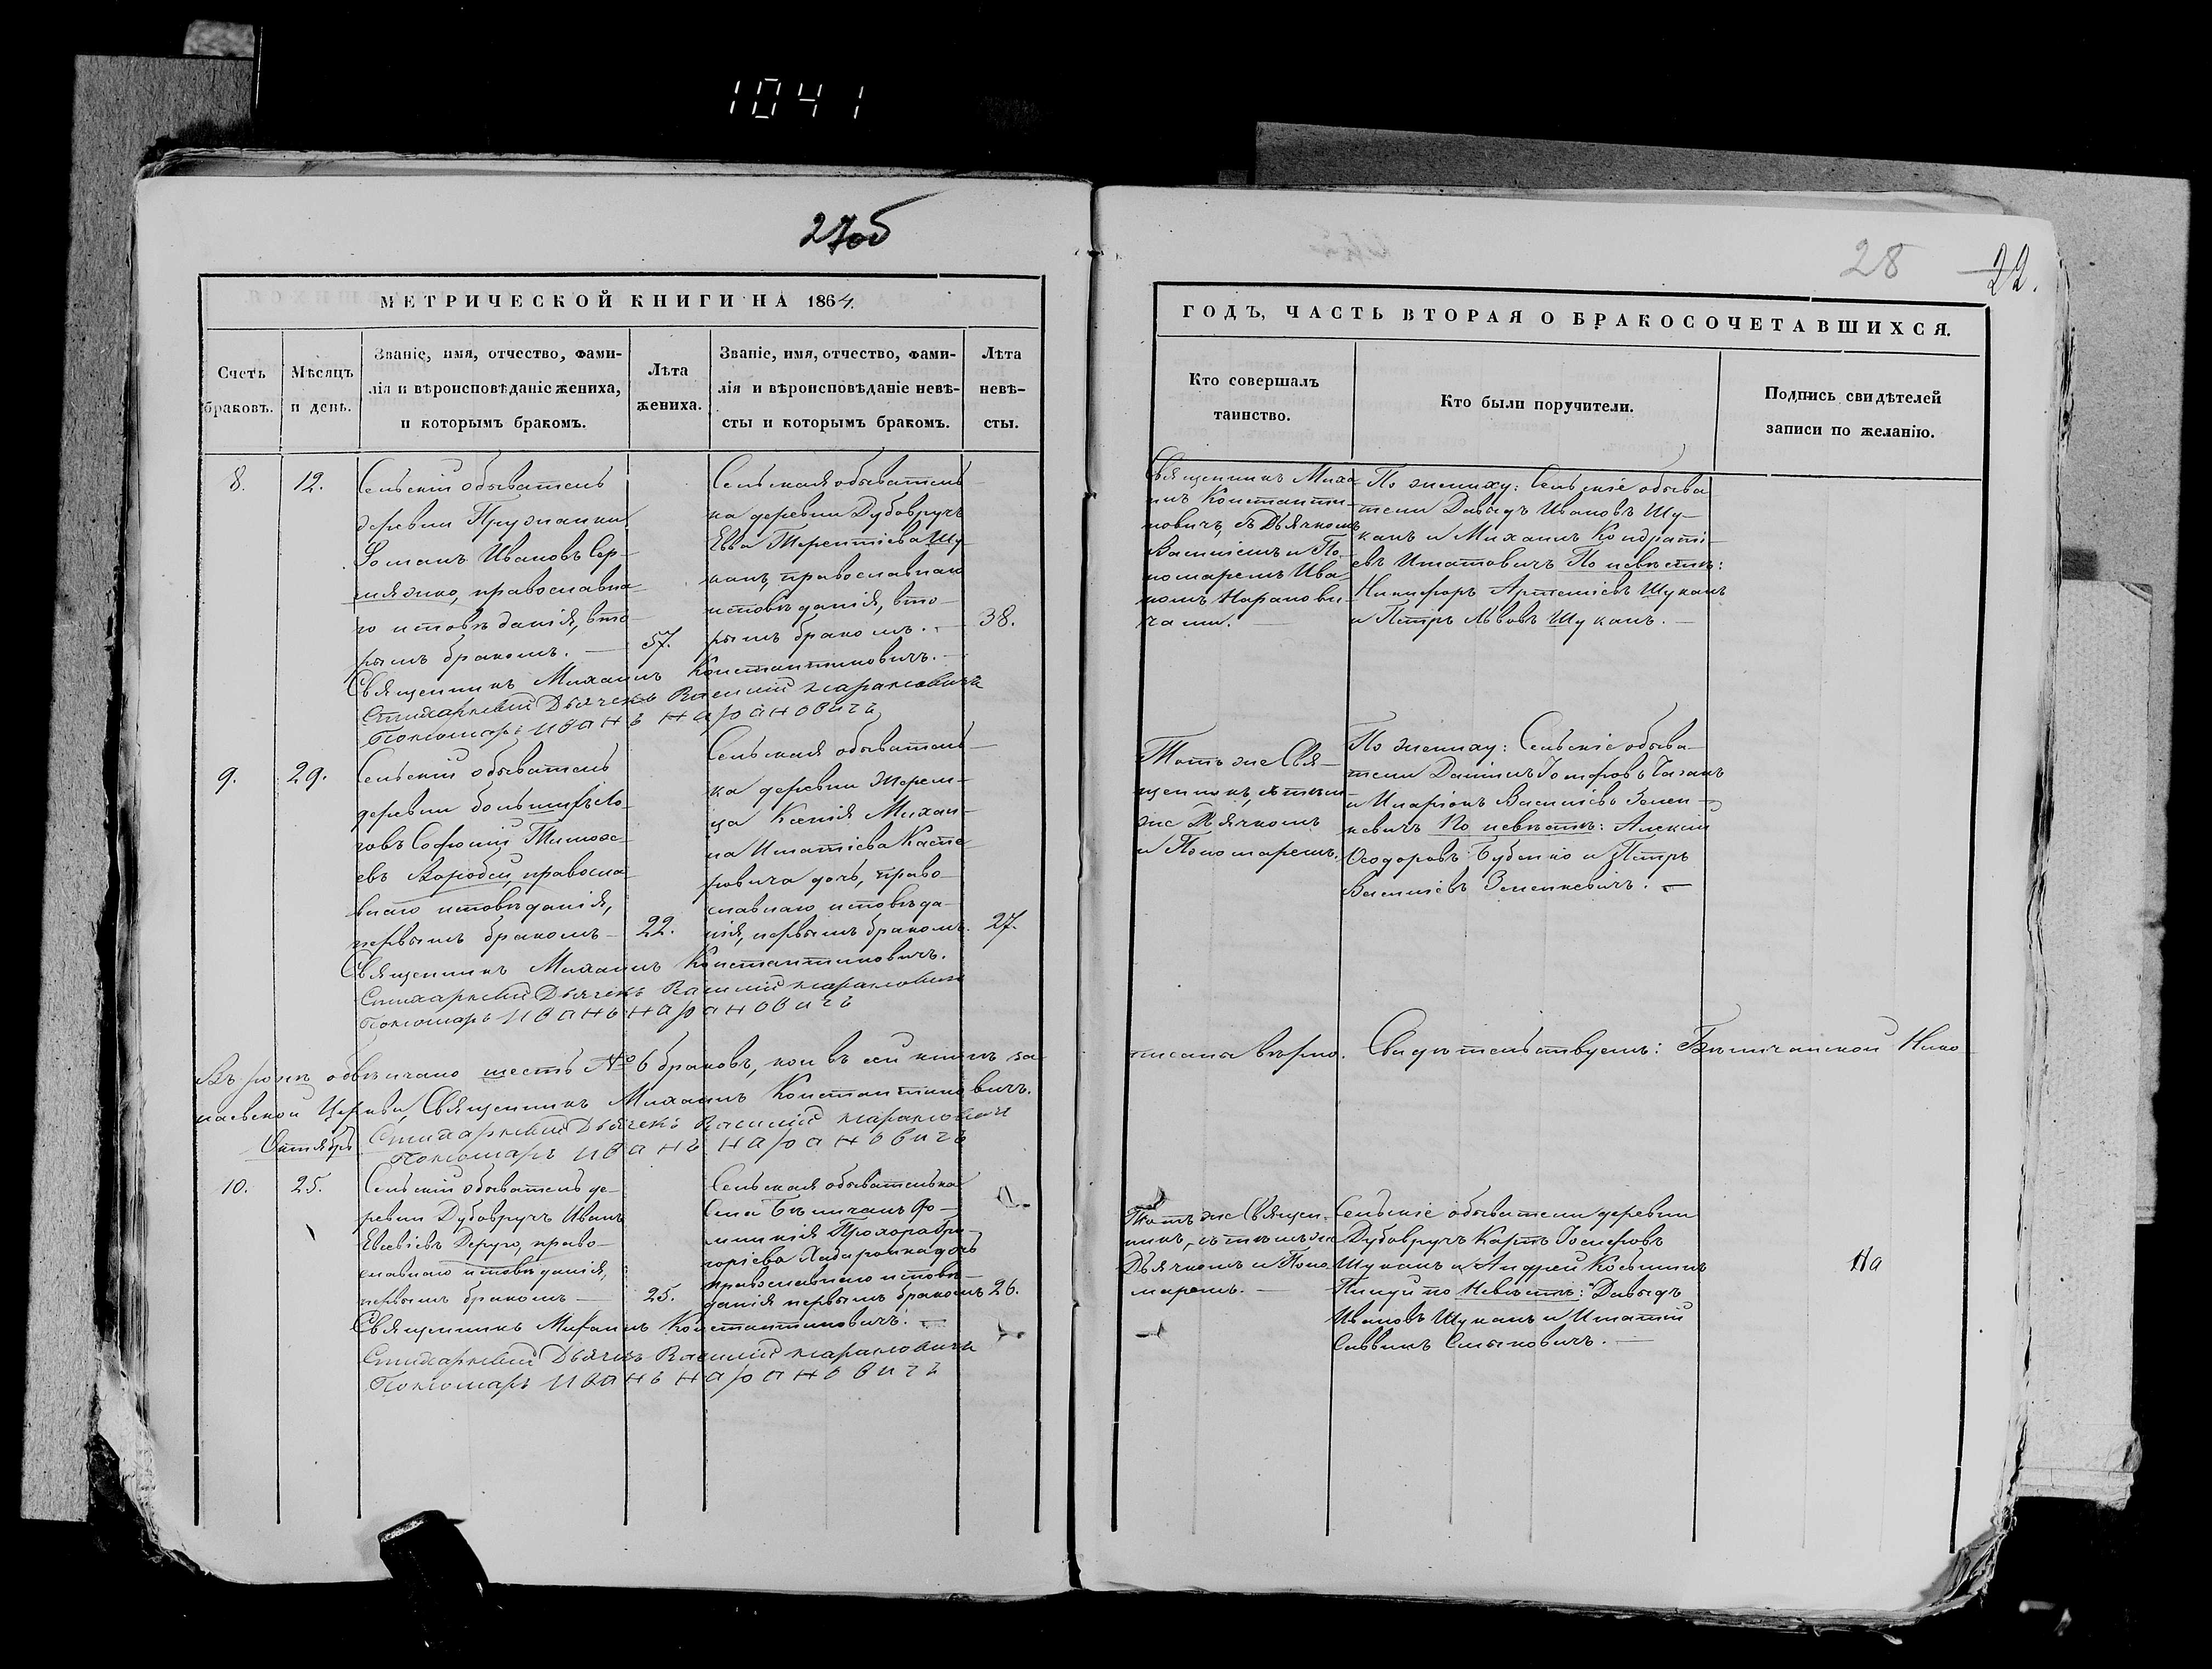 1041
27об
МЕТРИЧЕСКОЙ КНИГИ НА 1864.
Счетъ
браковъ.
Мѣсяцъ
и день.
Званіе, имя, отчество, фами-
лія и вѣроисповѣданіе жениха,
и которымъ бракомъ.
Лѣта
жениха.
Званіе, имя, отчество, фами-
лія и вѣроисповѣданіе невѣ-
сты и которымъ бракомъ.
Лѣта
невѣ-
сты.
8.
12.
Сельскій обыватель
деревни Пружанки
Романъ Ивановъ Сер-
мяжко, православна-
го исповѣданія, вто-
рымъ бракомъ. —
57.
Сельская обыватель-
ка деревни Дубовручъ
Евва Терентіева Шу-
канъ, православнаго
исповѣданія, вто-
рымъ бракомъ. —
38.
Священникъ Михаилъ Константиновичъ. —
Стихарный Дьячекъ Василій Нарановичъ
Пономарь Иванъ Нарановичъ
9.
29.
Сельскій обыватель
деревни Большихъ Ло-
говъ Софоній Тимофе-
евъ Воробей, правосла-
внаго исповѣданія,
первымъ бракомъ —
22.
Сельская обыватель-
ка деревни Терем-
ца Ксенія Михаи-
ла Игнатіева Каспе-
ровича дочь, право-
славнаго исповѣда-
нія, первымъ бракомъ.
27.
Священникъ Михаилъ Константиновичъ.
Стихарный Дьячекъ Василій Нарановичъ
Пономарь Иванъ Нарановичъ
Въ обвѣнчано шесть № 6 браковъ, кои въ сей книгѣ за-
лаевской Церкви, Священникъ Михаилъ Константиновичъ.
Стихарный Дьячекъ Василій Нарановичъ
Октябрь Пономарь Иванъ Нарановичъ
10.
25.
Сельскій обыватель де-
ревни Дубовручъ Иванъ
Евсевіевъ Деруго, право-
славнаго исповѣданія,
первымъ бракомъ —
25.
Сельская обывателька
Села Бѣличанъ Фо-
Прохора Гри-
горіева дочь
православнаго исповѣ-
данія первымъ бракомъ
26.
Священникъ Михаилъ Константиновичъ. —
Стихарный Дьячекъ Василій Нарановичъ
Пономарь Иванъ Нарановичъ
28 22.
ГОДЪ, ЧАСТЬ ВТОРАЯ О БРАКОСОЧЕТАВШИХСЯ.
Кто совершалъ
таинство.
Кто были поручители.
Подпись свидѣтелей
записи по желанію.
Священникъ Миха-
илъ Константи-
новичъ, съ Дьячкомъ
Василіемъ и По-
номаремъ Ива-
номъ Наранови-
чами. —
По жениху: Сельскіе обыва-
тели Давыдъ Ивановъ Шу-
канъ и Михаилъ Кондраті-
евъ Игнатовичъ По невѣстѣ:
Никифоръ Артеміевъ Шуканъ
и Петръ Львовъ Шуканъ. —
Тотъ же Свя-
щенникъ, съ тѣмъ
же Дьячкомъ
и Пономаремъ.
По жениху: Сельскіе обыва-
тели Даніилъ Іосифовъ
и Иларіонъ Василіевъ Зелен-
кевичъ По невѣстѣ: Алексій
Ѳеодоровъ Бубенко и Петръ
Василіевъ Зеленкевичъ. —
писана вѣрно. Свидѣтельствуемъ: Бѣличанской Нико-
Тотъ же Священ-
никъ, съ тѣмъ же
Дьячкомъ и Поно-
маремъ. —
Сельскіе обыватели деревни
Дубовручъ Карпъ Іосифовъ
Шуканъ и Андрей Козьминъ
по Невѣстѣ: Давыдъ
Ивановъ Шуканъ и Игнатій
Саввинъ —
На